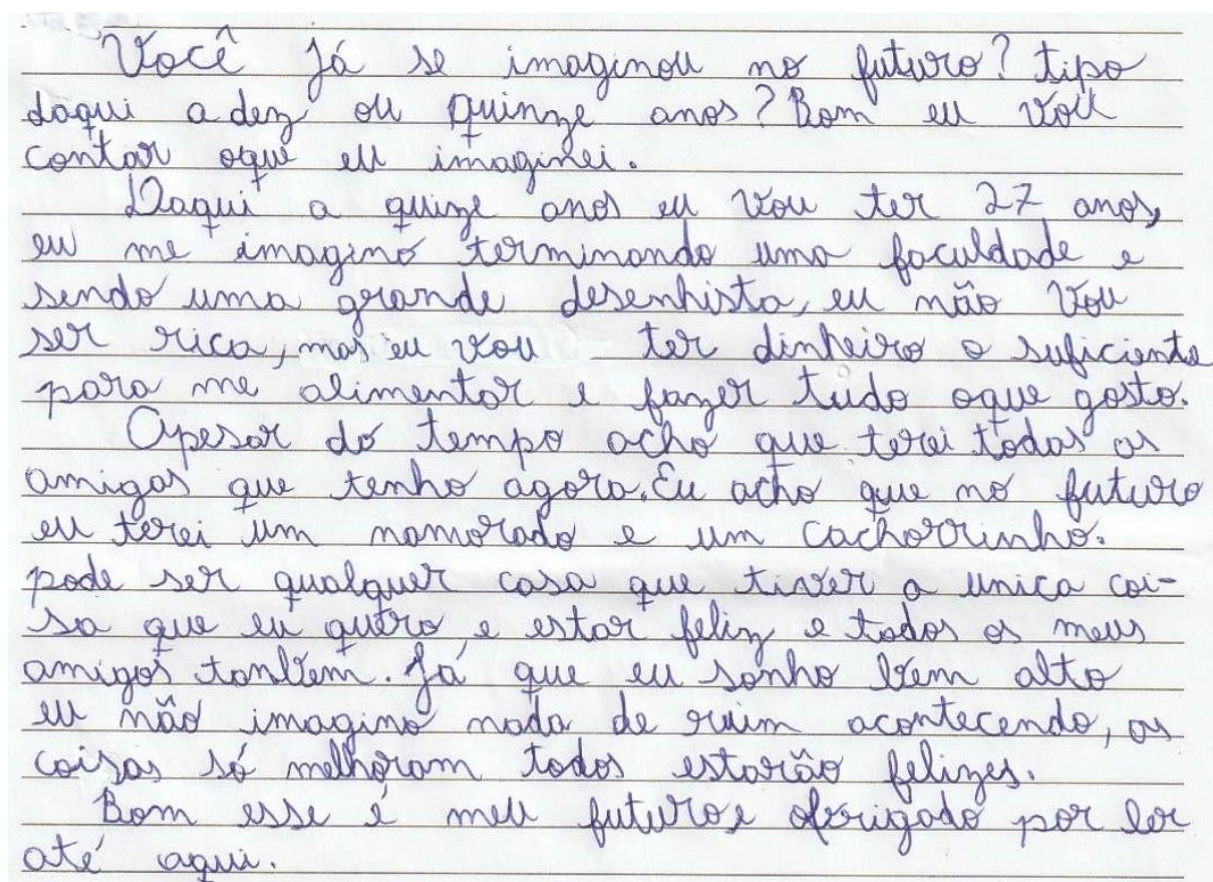 Você já se imaginou no futuro? tipo
daqui a dez ou quinze anos? Bom eu vou
contar oque eu imaginei.
Daqui a quize anos eu vou ter 27 anos,
eu me imagino terminando uma faculdade e
sendo uma grande desenhista, eu não vou
ser rica, mas eu vou ter dinheiro o suficiente
para me alimentar e fazer tudo oque gosto.
Apesar do tempo acho que terei todas as
amigas que tenho agora. Eu acho que no futuro
eu terei um namorado e um cachorrinho.
pode ser qualquer casa que tiver a unica coi-
sa que eu quero, e estar feliz e todos os meus
amigos tanbem. Já que eu sonho bem alto
eu não imagino nada de ruim acontecendo, as
coisas só melhoram todos estarão felizes.
Bom esse é meu futuro e obrigado por ler
até aqui.